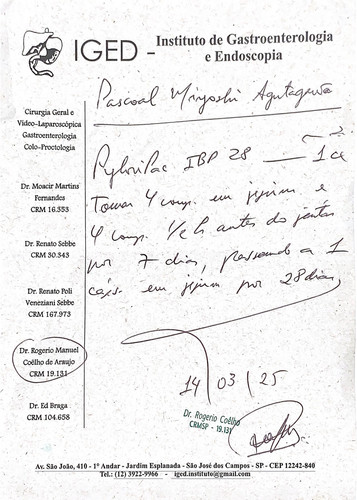 IGED - Instituto de Gastroenterologia
e Endoscopia
Cirurgia Geral e
Vídeo-Laparoscópica
Gastroenterologia
Colo-Proctologia
Dr. Moacir Martins
Fernandes
CRM 16.353
Dr. Renato Sebbe
CRM 30.343
Dr. Renato Poli
Veneziani Sebbe
CRM 167.973
Dr. Rogerio Manuel
Coêlho de Araujo
CRM 19.131
Dr. Ed Braga
CRM 104.658
Pascoal Miyoshi
PyloriPac IBP 28 — 1 cx
Tomar 4 comp. em jejum e
4 comp. 1/2 h antes do jantar
por 7 dias, passando a 1
cáps. em jejum por 28 dias
14 / 03 / 25
Dr. Rogerio Coêlho
CRMSP - 19.131
Av. São João, 410 - 1º Andar - Jardim Esplanada - São José dos Campos - SP - CEP 12242-840
Tel.: (12) 3922-9966 - iged.instituto@gmail.com